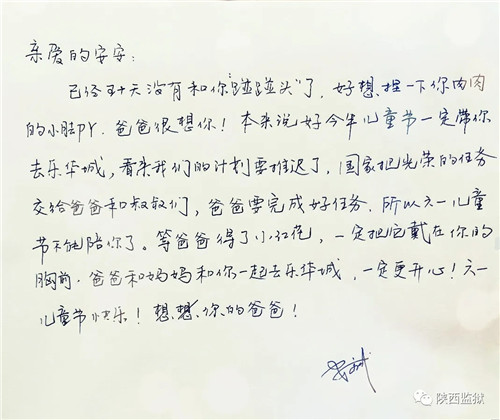 亲爱的安安:
已经五十天没有和你“碰碰头”了,好想捏一下你肉肉
的小胖PY.爸爸很想你!本来说好今年儿童节一定带你
去乐华城,看来我们的计划要推迟了,国家把光荣的任务
交给爸爸和叔叔们,爸爸要完成好任务.所以六一儿童
节不能陪你了。等爸爸得了小红花,一定把它戴在你的
胸前.爸爸和妈妈和你一起去乐华城,一定更开心!六一
儿童节快乐!想想你的爸爸!
陕西监狱